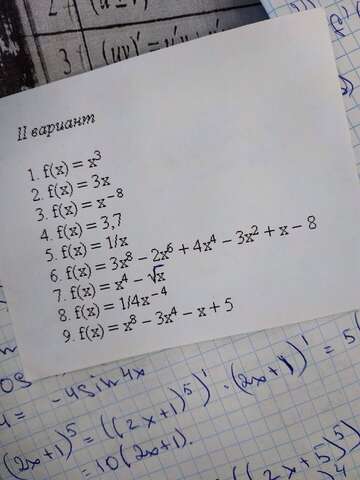 3
(uv)' = u'v +
II вариант
1. f(x) = x³
2. f(x) = 3x
3. f(x) = x⁻⁸
4. f(x) = 3,7
5. f(x) = 1/x
6. f(x) = 3x⁸ − 2x⁶ + 4x⁴ − 3x² + x − 8
7. f(x) = x⁴ − √x
8. f(x) = 1/4x⁻⁴
9. f(x) = x⁸ − 3x⁴ − x + 5
-4sin4x
(2x+1)⁵ = ((2x+1)⁵)' · (2x+1)' = 5
= 10(2x+1).